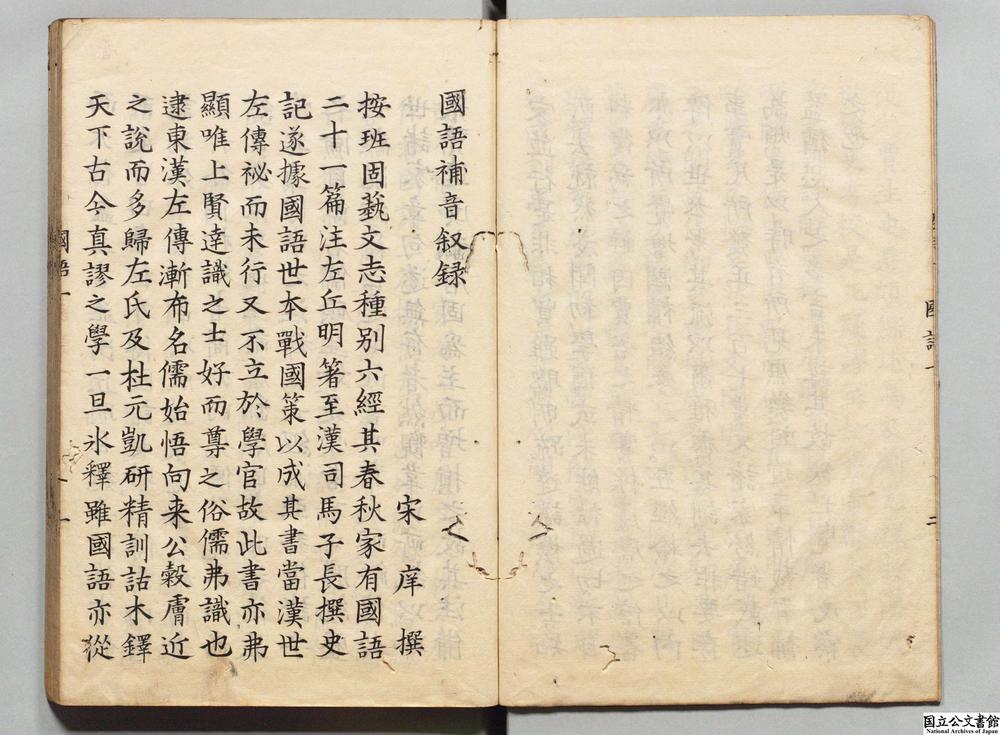 國語補音叙録
宋庠撰
按班固藝文志種别六經其春秋家有國語
二十一篇注左丘明著至漢司馬子長撰史
記遂據國語世本戰國策以成其書當漢世
左傳祕而未行又不立於學官故此書亦弗
顯唯上賢達識之士好而尊之俗儒弗識也
逮東漢左傳漸布名儒始悟向来公穀膚近
之說而多歸左氏及杜元凱研精訓詁木鐸
天下古今真謬之學一旦氷釋雖國語亦從
國語一
一
国立公文書館
National Archives of Japan